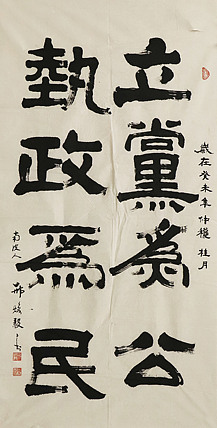 立黨為公
執政為民
歲在癸未年仲秋桂月
南皮人